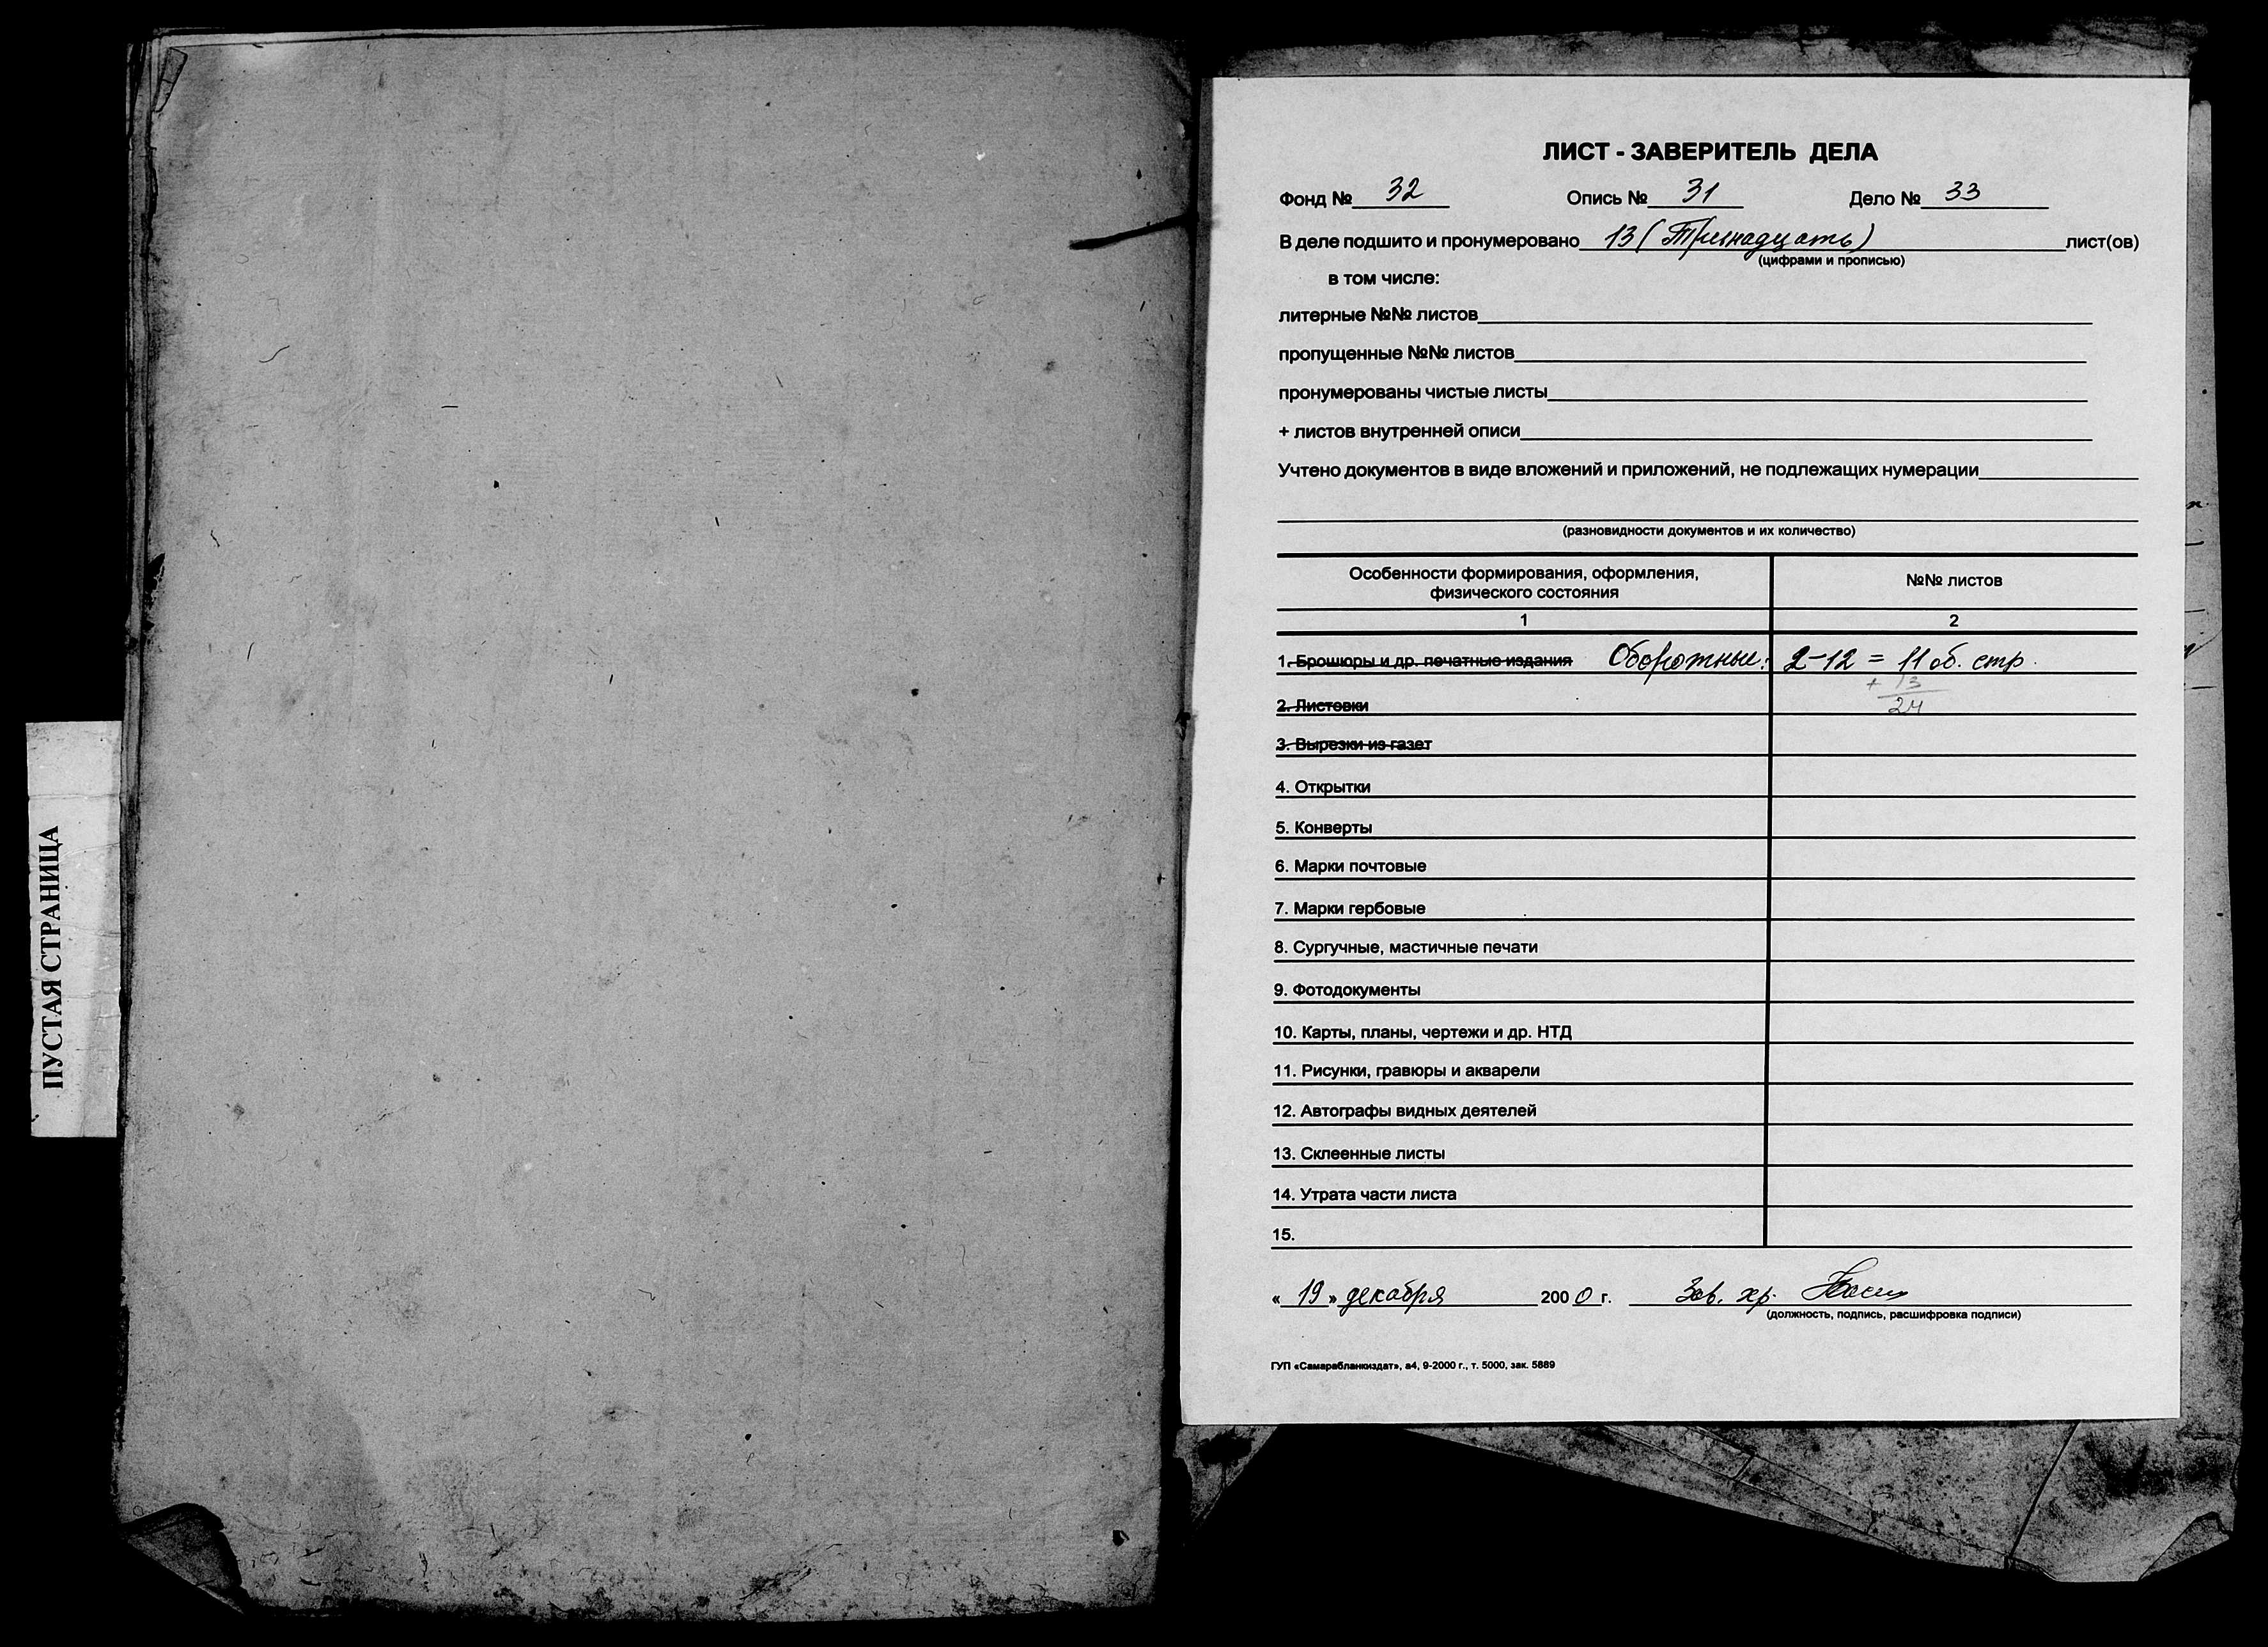 ПУСТАЯ СТРАНИЦА
ЛИСТ - ЗАВЕРИТЕЛЬ ДЕЛА
Фонд № 32 Опись № 31 Дело № 33
В деле подшито и пронумеровано 13 (Тринадцать) лист(ов)
(цифрами и прописью)
в том числе:
литерные №№ листов
пропущенные №№ листов
пронумерованы чистые листы
+ листов внутренней описи
Учтено документов в виде вложений и приложений, не подлежащих нумерации
(разновидности документов и их количество)
Особенности формирования, оформления, №№ листов
физического состояния
1 2
1. Брошюры и др. печатные издания Оборотные: 2-12 = 11 об. стр.
+ 13
2. Листовки 24
3. Вырезки из газет
4. Открытки
5. Конверты
6. Марки почтовые
7. Марки гербовые
8. Сургучные, мастичные печати
9. Фотодокументы
10. Карты, планы, чертежи и др. НТД
11. Рисунки, гравюры и акварели
12. Автографы видных деятелей
13. Склеенные листы
14. Утрата части листа
15.
« 19 » декабря 2000 г. Зав. хр.
(должность, подпись, расшифровка подписи)
ГУП «Самарабланкиздат», а4, 9-2000 г., т. 5000, зак. 5889